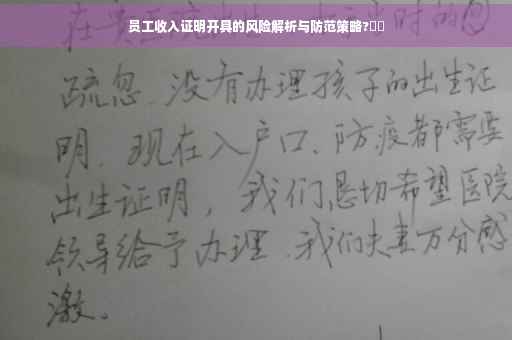 员工收入证明开具的风险解析与防范策略?
疏忽、没有办理孩子的出生证
明、现在入户口、防疫都需要
出生证明，我们恳切希望医院
领导给予办理、我们夫妻万分感
激。